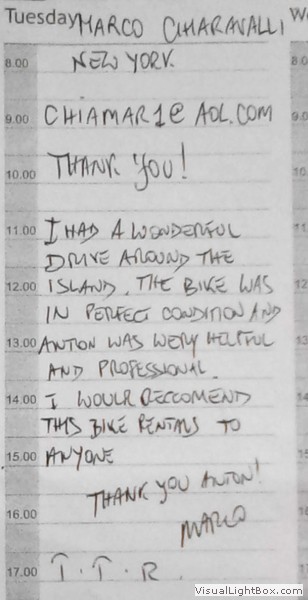 Tuesday MARCO CHIARAVALLI We
NEW YORK.
8.00
9.00 CHIAMAR1@AOL.COM
THANK YOU!
10.00
11.00 I HAD A WONDERFUL
DRIVE AROUND THE
12.00 ISLAND. THE BIKE WAS
IN PERFECT CONDITION AND
13.00 ANTON WAS WERY HELPFUL
AND PROFESSIONAL.
14.00 I WOULR RECCOMEND
THIS BIKE RENTALS TO
15.00 ANYONE
THANK YOU ANTON!
16.00
MARCO
17.00 T. T. R.
VisualLightBox.com